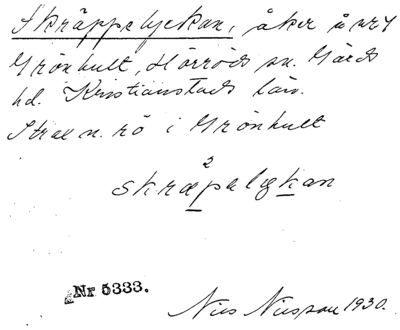 Skräppelyckan, åker å nr 1
Grönhult, Hörröds sn. Gärds
hd. Kristianstads län.
Strax n. rö i Grönhult
2
skræpalykan
Nr 5333.
Nils Nilsson 1930.